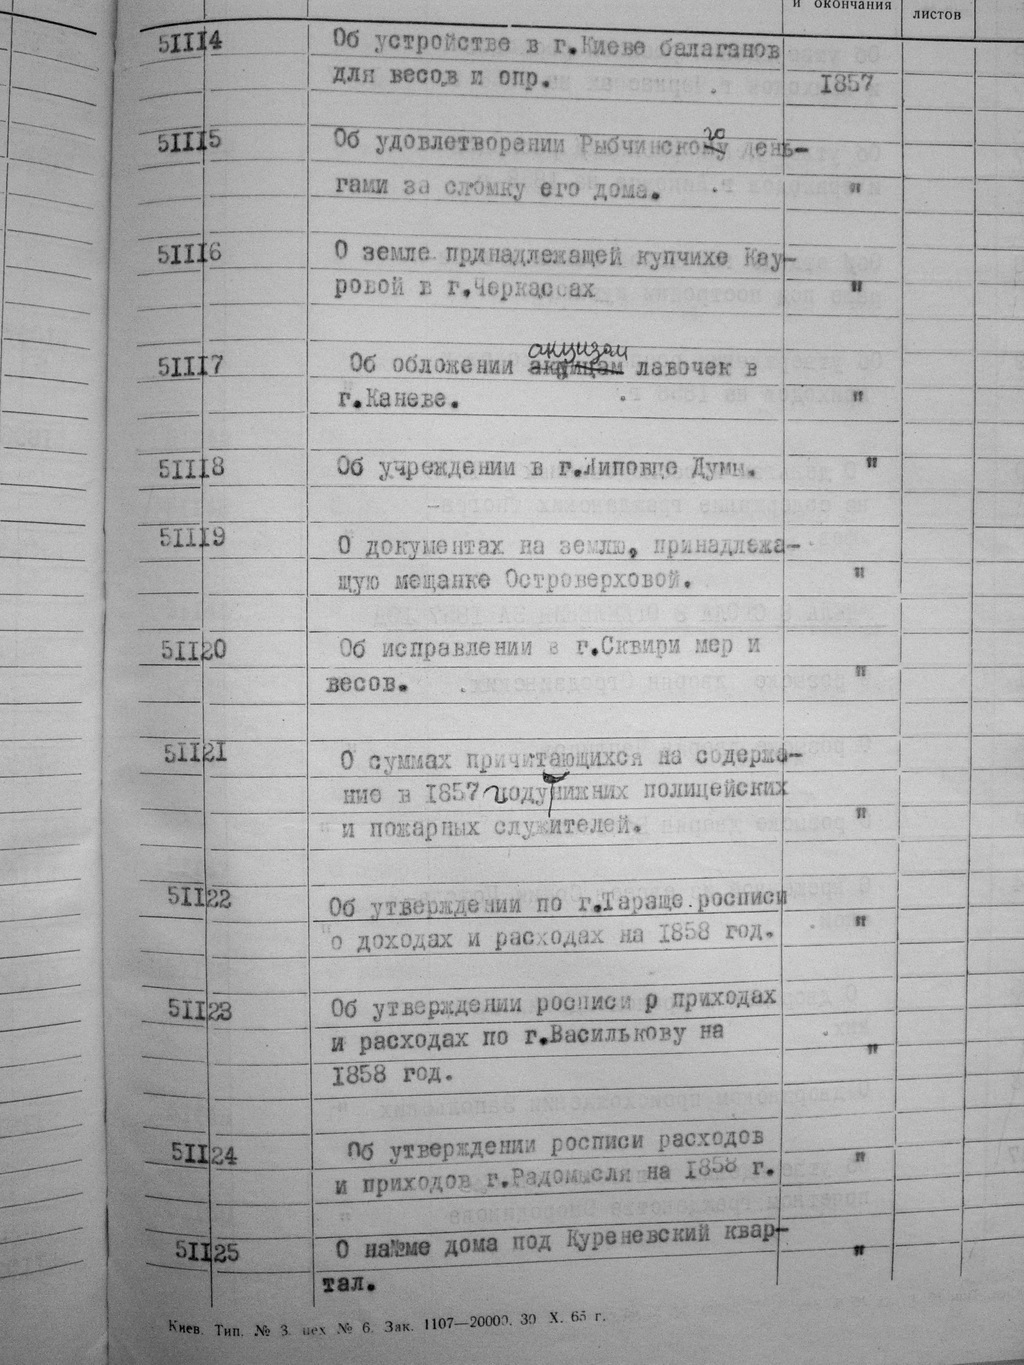 и окончания
листов
51114 Об устройстве в г.Киеве балаганов
для весов и опр. 1857
51115 Об удовлетворении Рыбчинского день-
гами за сломку его дома. "
51116 О земле принадлежащей купчихе Кау-
ровой в г.Черкассах "
акцизом
51117 Об обложении акцицам лавочек в
г.Каневе. "
51118 Об учреждении в г.Липовце Думы. "
51119 О документах на землю, принадлежа-
щую мещанке Островерховой. "
51120 Об исправлении в г.Сквири мер и
весов. "
51121 О суммах причитающихся на содержа-
ние в 1857 году нижних полицейских
и пожарных служителей. "
51122 Об утверждении по г.Тараще росписи
о доходах и расходах на 1858 год. "
51123 Об утверждении росписи о приходах
и расходах по г.Василькову на
1858 год. "
51124 Об утверждении росписи расходов
и приходов г.Радомысля на 1858 г. "
51125 О найме дома под Куреневский квар-
тал. "
Киев. Тип. № 3. цех № 6. Зак. 1107—20000. 30 X. 65 г.